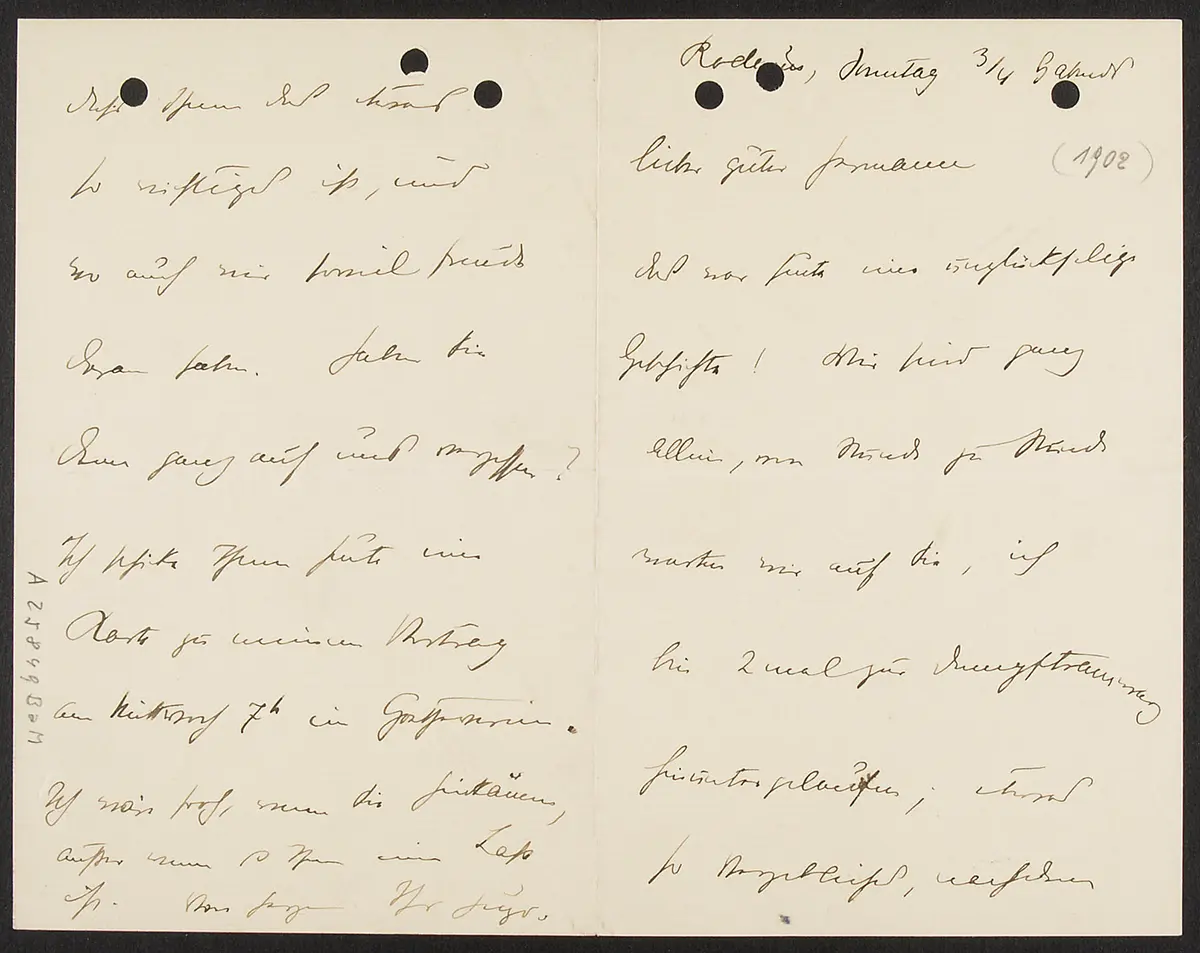 Rodaun, Sonntag 3/4 abends
(1902)
lieber guter Hermann
das war heute eine unglückselige
Geschichte! Wir sind ganz
allein, von Stunde zu Stunde
warten wir auf Sie, ich
bin 2 mal zur Dampftramway
hinuntergelaufen; etwas
so Vergebliches, nachdem
Ihnen das etwas
so wichtiges ist, und
wo auch wir soviel Freude
daran haben. Haben Sie
denn ganz auf uns vergessen?
Ich schicke Ihnen heute eine
Karte zu meinem Vortrag
am Mittwoch 7h im Goetheverein.
Ich wäre froh, wenn Sie hinkämen,
außer wenn es Ihnen eine Last
ist. Von Herzen Ihr Hugo.
A 25849 BaM